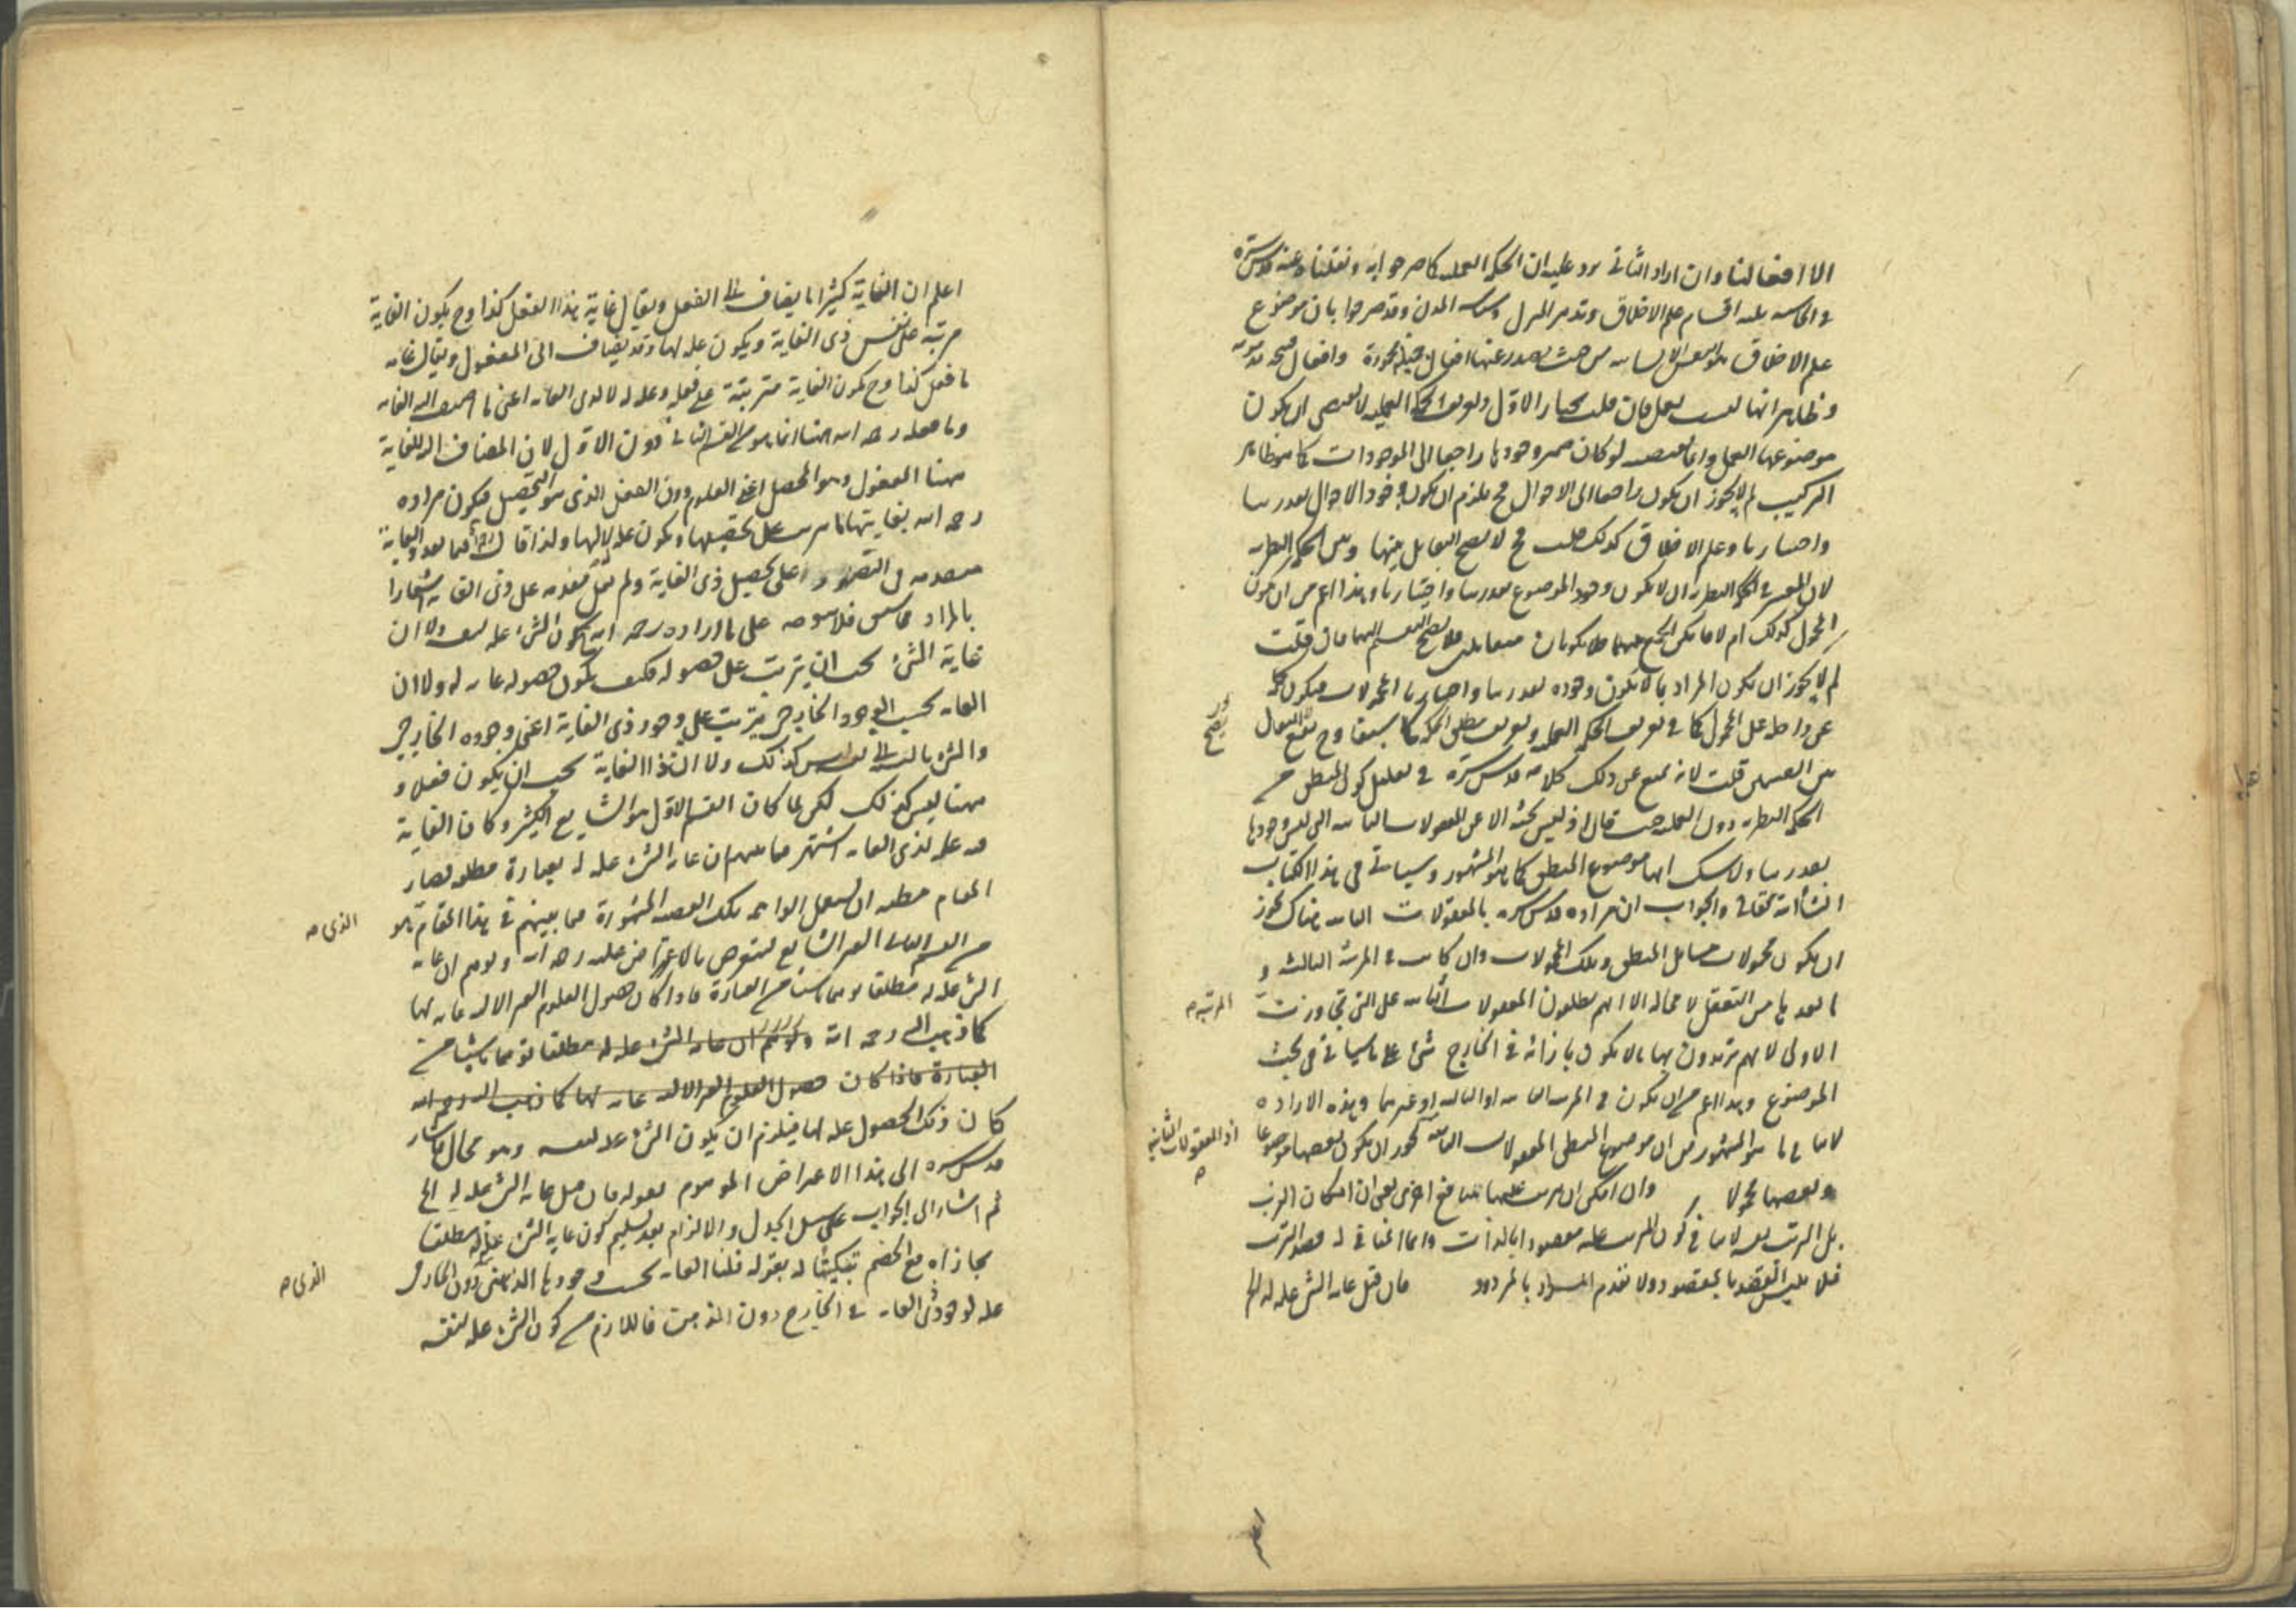 الا افعالنا وان اراد الثاني يرد عليه ان الحكمة العملية كما صرحوا به ونقلناه عنه قدس سره
في الحاشية ثلثة اقسام علم الاخلاق وتدبير المنزل وسياسة المدن وقد صرحوا بان موضوع
علم الاخلاق هو النفس الانسانية من حيث يصدر عنها افعال جميلة محمودة وافعال قبيحة مذمومة
وظاهر انها ليست بعمل فان قلت نختار الاول وتعريف الحكمة العملية لا يقتضي ان يكون
موضوعها العمل وانما يقتضيه لو كان ضمير وجودها راجعا الى الموجودات كما هو ظاهر
التركيب لم لا يجوز ان يكون راجعا الى الاحوال فح يلزم ان يكون وجود الاحوال بقدرتنا
واختيارنا وعلم الاخلاق كذلك قلت فح لا يصح التقابل بينها وبين الحكمة النظرية
لان المعتبر في الحكمة النظرية ان لا يكون وجود الموضوع بقدرتنا واختيارنا وهذا اعم من ان يكون
المحمول كذلك ام لا فامكن الجمع بينهما فلا يكونان متقابلين فلا يصح التقسيم اليهما فان قلت
لم لا يجوز ان يكون المراد ما لا يكون وجوده بقدرتنا واختيارنا المحمولات فيكون
في تعريف الحكمة العملية وتعريف مطلق الحكمة كما سبق وح يقع التقابل
بين القسمين قلت لانه يمنع عن ذلك كلامه قدس سره في تعليل كون المنطق من
الحكمة النظرية دون العملية حيث قال اذ ليس بحثه الا عن المعقولات الثانية التي ليس وجودها
بقدرتنا ولا شك انها موضوع المنطق كما هو المشهور وسيأتي في هذا الكتاب
ان شاء الله تعالى والجواب ان مراده قدس سره بالمعقولات الثانية هناك يجوز
ان يكون محمولات مسائل المنطق وتلك المحمولات وان كانت في المرتبة الثالثة و
ما بعدها من التعقل لا محالة الا انهم يطلقون المعقولات الثانية على التي تجاوزت
المرتبة صح
الاولى لانهم يريدون بها ما لا يكون بازائه في الخارج شيء على ما سيأتي في بحث
الموضوع وهذا اعم من ان يكون في المرتبة الثانية او الثالثة او غيرهما وهذه الارادة
لا ينافي ما هو المشهور من ان موضوع المنطق المعقولات الثانية يجوز ان يكون بعضها موضوعا
اذ المعقولات الثانية
وبعضها محمولا وان امكن ان يترتب عليها منافع اخرى يعني ان امكان الترتب
بل الترتب نفسه لا ينافي كون المترتب عليه مقصودا بالذات وانما المنافي له قصد الترتب
فلا يلتبس المقصد بالمقصود ولا تقدم المراد بالمردود فان قيل غاية الشيء علة له الخ
اعلم ان الغاية كثيرا ما يضاف الى الفعل ويقال غاية هذا الفعل كذا وح يكون الغاية
مرتبة على نفس ذي الغاية ويكون علة لها وقد يضاف الى المفعول ويقال غاية
ما فعل كذا وح يكون الغاية مترتبة على فعله وعلة له لا لذي الغاية اعني ما اضيف اليه الغاية
وما فعله رحمه الله ههنا انما هو من القسم الثاني دون الاول لان المضاف اليه للغاية
ههنا المفعول وهو المحصل اعني العلوم دون الفعل الذي هو التحصيل فيكون مراده
رحمه الله بغايتها ما يترتب على تحصيلها ويكون علة له لا لها ولذا قال فيما بعد والغاية
متقدمة في التصور على تحصيل ذي الغاية ولم يقل متقدمة على ذي الغاية اشعارا
بالمراد فلا يتوجه على ما اراده رحمه الله كون الشيء علة لنفسه ولا ان
غاية الشيء يجب ان يترتب على حصوله فكيف يكون حصوله غاية له ولا ان
الغاية بحسب الوجود الخارجي يترتب على وجود ذي الغاية اعني وجوده الخارجي
والشيء بالنسبة الى نفسه ليس كذلك ولا ان ذا الغاية يجب ان يكون فعلا و
ههنا ليس كذلك لكن لما كان القسم الاول هو الشايع الكثير وكان الغاية
فيه علة لذي الغاية اشتهر فيما بينهم ان غاية الشيء علة له بعبارة مطلقة فصار
المقام مظنة ان يستعمل الواهم تلك القضية المشهورة فيما بينهم في هذا المقام هو
الذي صح
من القسم الثاني الغير الشايع فيتعرض بالاعتراض عليه رحمه الله ويوهم ان غاية
الشيء علة له مطلقا توهما ناشئا من العبارة فاذا كان حصول العلوم الغير الآلية غاية لها
كما ذهب اليه رحمه الله ويوهم ان غاية الشيء علة له مطلقا توهما ناشئا من
العبارة فاذا كان حصول العلوم الغير الآلية غاية لها كما ذهب اليه رحمه الله
كان ذلك الحصول علة لها فيلزم ان يكون الشيء علة لنفسه وهو محال فاشار
قدس سره الى هذا الاعتراض الموهوم بقوله فان قيل غاية الشيء علة له الخ
ثم اشار الى الجواب على سبيل الجدل والالزام بعد تسليم كون غاية الشيء علة له مطلقا
مجازاة مع الخصم تبكيتا له بقوله قلنا الغاية بحسب وجودها الذهني دون الخارجي
الذي صح
علة لوجود ذي الغاية في الخارج دون الذهن فاللازم من كون الشيء علة لنفسه